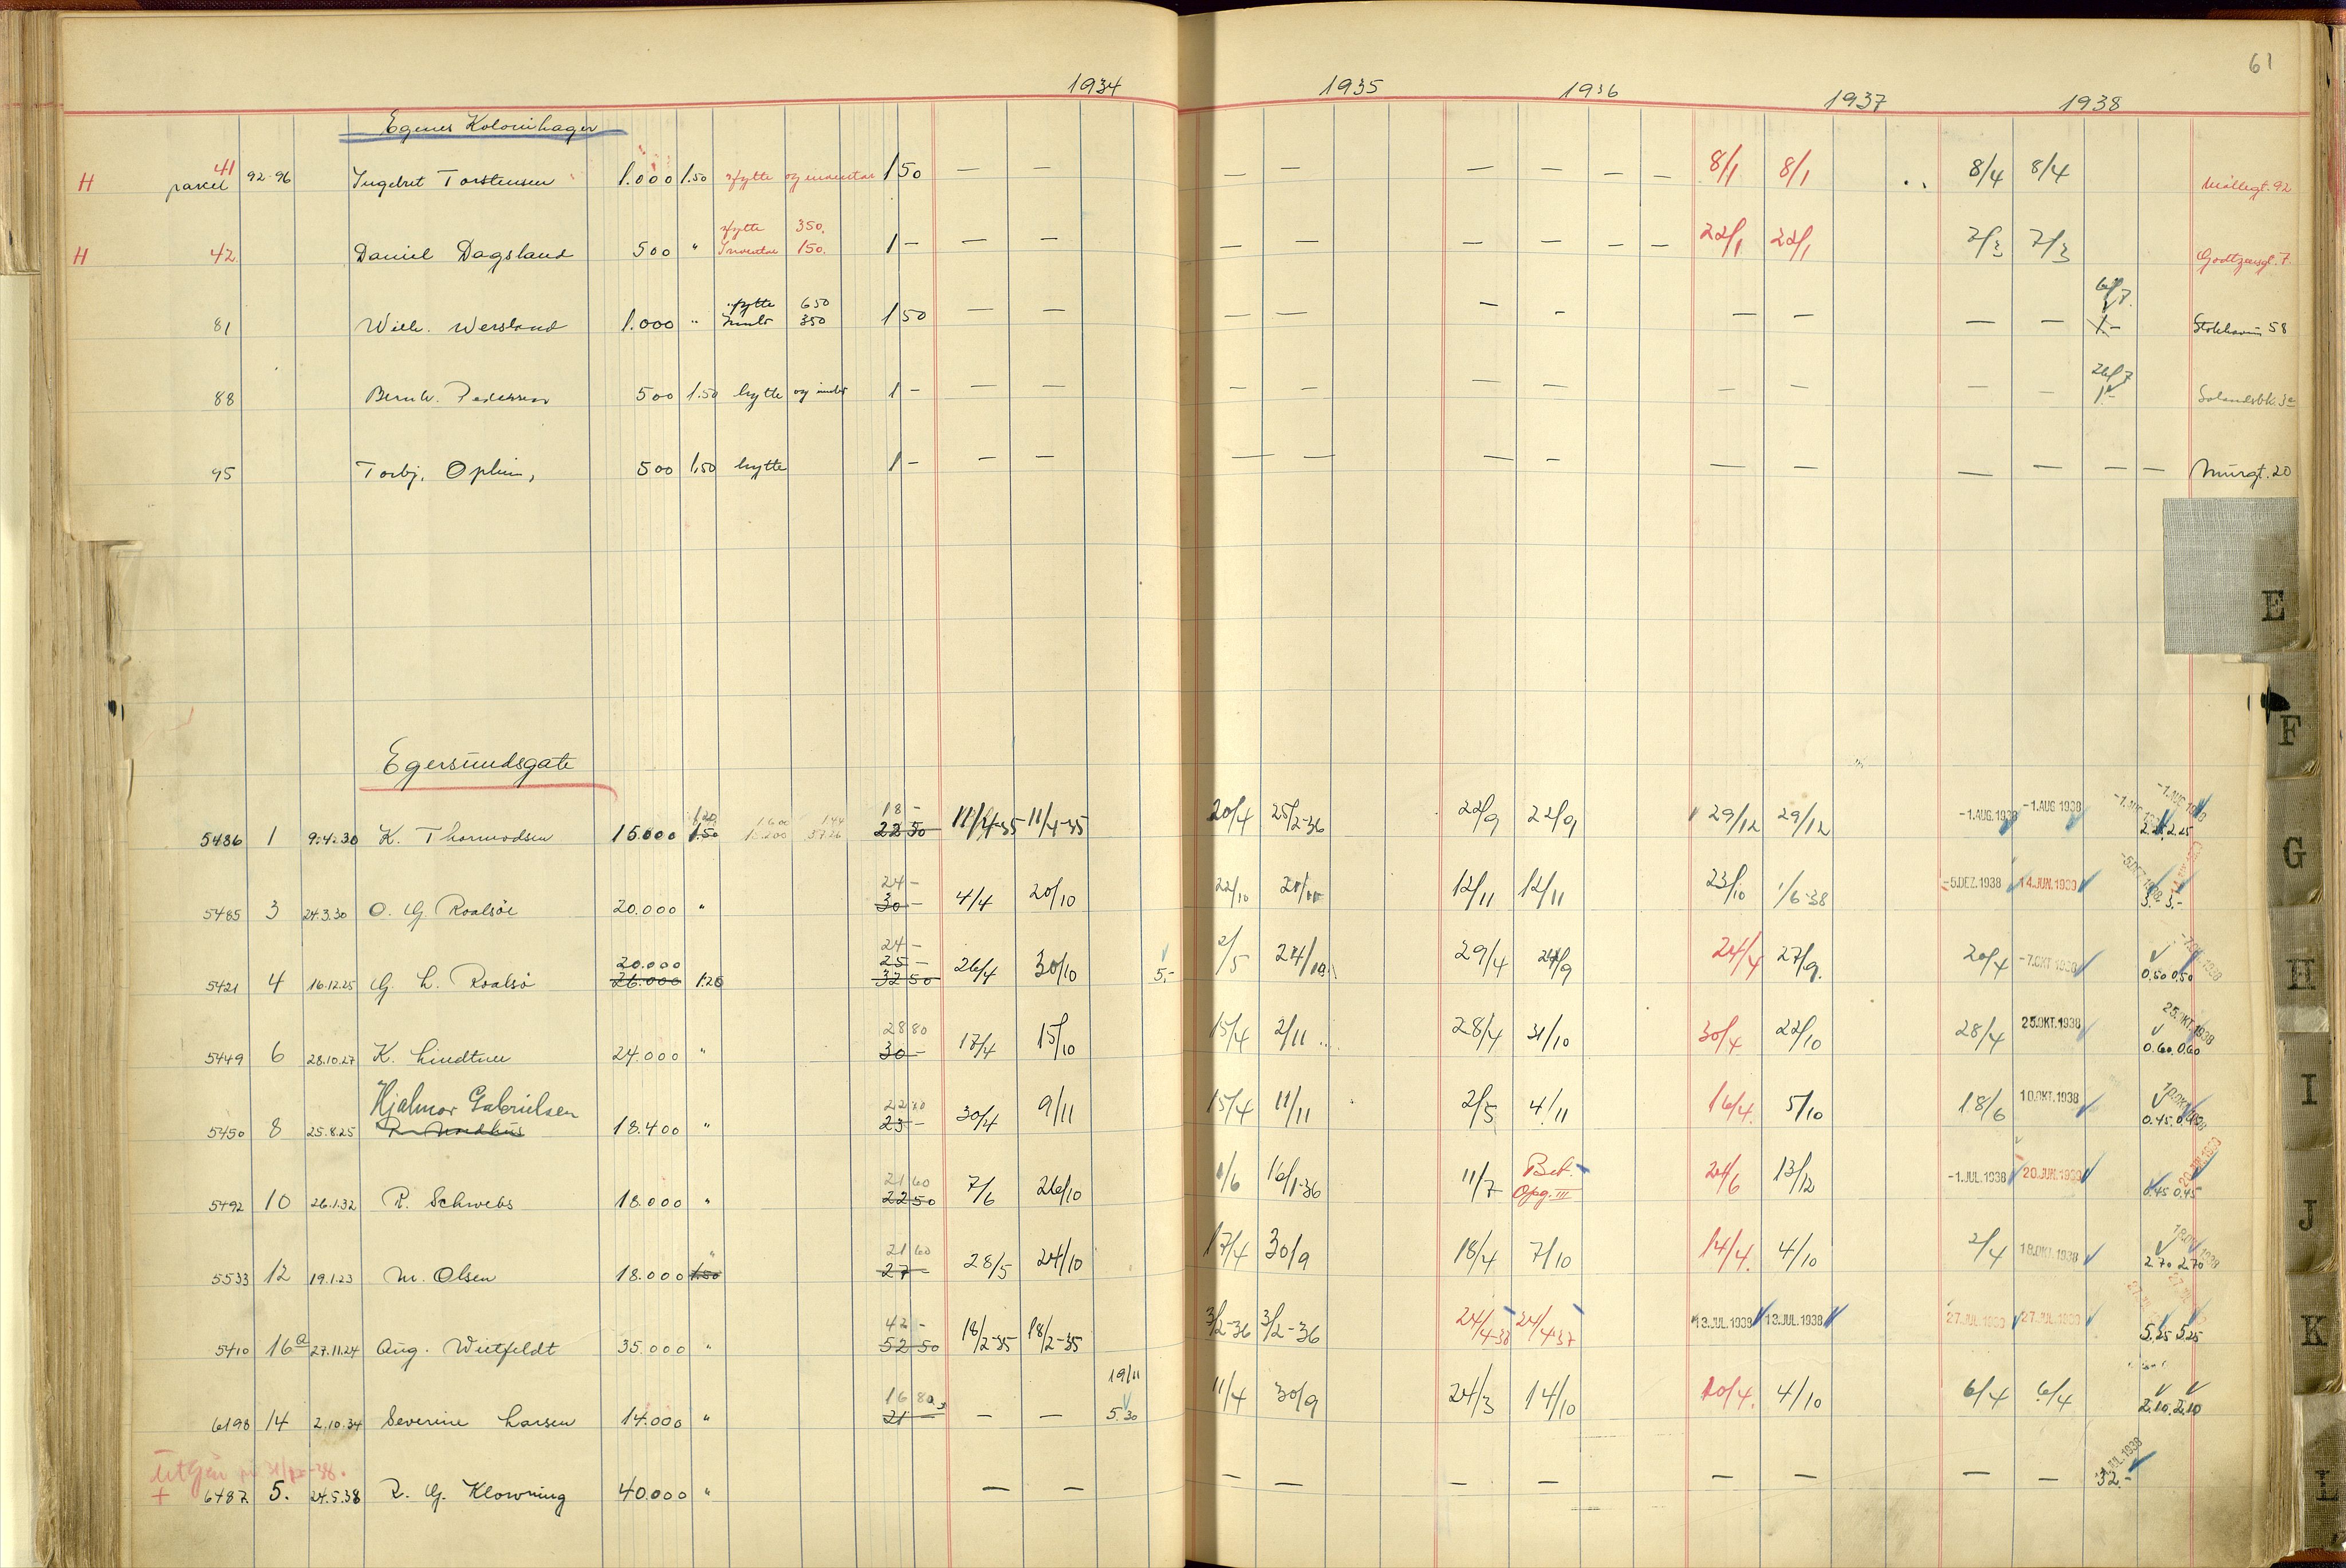 61
1934 1935 1936 1937 1938
Egenes Kolonihager
H 41 parcel 92-96 Ingebret Torstensen 1.000 1.50 hytte og inventar 1 50 — — — — — — — — 8/1 8/1 8/4 8/4 Møllegt. 92
hytte 350.
H 42 Daniel Dagsland 500 " Inventar 150. 1 — — — — — — — — — 22/1 22/1 7/3 7/3
hytte 650 6/7
81 Wilh. Wersland 1.000 " 350 1 50 — — — — — — — — — — 1.- 58
26/7
88 Bernh. Pedersen 500 1.50 hytte og innbo 1 — — — — — — — — — — — 1-
95 Torbj. 500 1.50 hytte 1 — — — — — — — — — — — — — Murgt. 20
E
F
G
H
I
J
K
L
Egersundsgate
1.20 18 -
5486 1 9.4.30 K. Thormodsen 15.000 1.50 22 50 11/4-35 11/4-35 20/4 25/2-36 22/9 22/9 29/12 29/12 -1.AUG.1938 -1.AUG.1938 -1.AUG.1938 -1.AUG.1938 2.25 2.25
24 -
5485 3 24.3.30 O. G. Roalsø 20.000 " 30 - 4/4 20/10 22/10 12/11 12/11 23/10 1/6-38 -5.DEZ.1938 14.JUN.1939 -5.DEZ.1938 3.- 3.-
20.000 24 -
25 -
5421 4 16.12.25 G. L. Roalsø 26.000 1.20 32 50 26/4 30/10 5.- 2/5 24/10 29/4 24/9 24/4 27/9 20/4 -7.OKT.1938 0.50 0.50
28 80
5449 6 28.10.27 K. Lindtner 24.000 " 30 - 17/4 15/10 15/4 2/11 28/4 31/10 30/4 22/10 28/4 25.OKT.1938 25.OKT.1938 0.60 0.60
Hjalmar Gabrielsen
5450 8 25.8.25 18.400 " 23 - 30/4 9/11 15/4 11/11 2/5 4/11 16/4 5/10 18/6 10.OKT.1938 10.OKT.1938 0.45 0.45
21 60
5492 10 26.1.32 R. Schwebs 18.000 " 22 50 7/6 26/10 1/6 16/1-36 11/7 Bet. Opg. III 24/6 13/12 -1.JUL.1938 20.JUN.1939 0.45 0.45
21 60
5533 12 19.1.23 M. Olsen 18.000 1.50 27 - 28/5 24/10 17/4 30/9 18/4 7/10 14/4 4/10 2/4 18.OKT.1938 18.OKT.1938 2.70 2.70
42 -
5410 16a 27.11.24 Aug. Wietfeldt 35.000 " 52 50 18/2-35 18/2-35 3/2-36 3/2-36 24/4-38 24/4-37 13.JUL.1938 13.JUL.1938 27.JUL.1939 27.JUL.1939 5.25 5.25
16 80 19/11
6198 14 2.10.34 Severine Larsen 14.000 " 21 - — — 5.30 11/4 30/9 24/3 14/10 20/4 4/10 6/4 6/4 2.10 2.10
Utgår
+ 6487 5. 24.5.38 R. G. Klowning 40.000 " — — — — — — — — — — 32.-